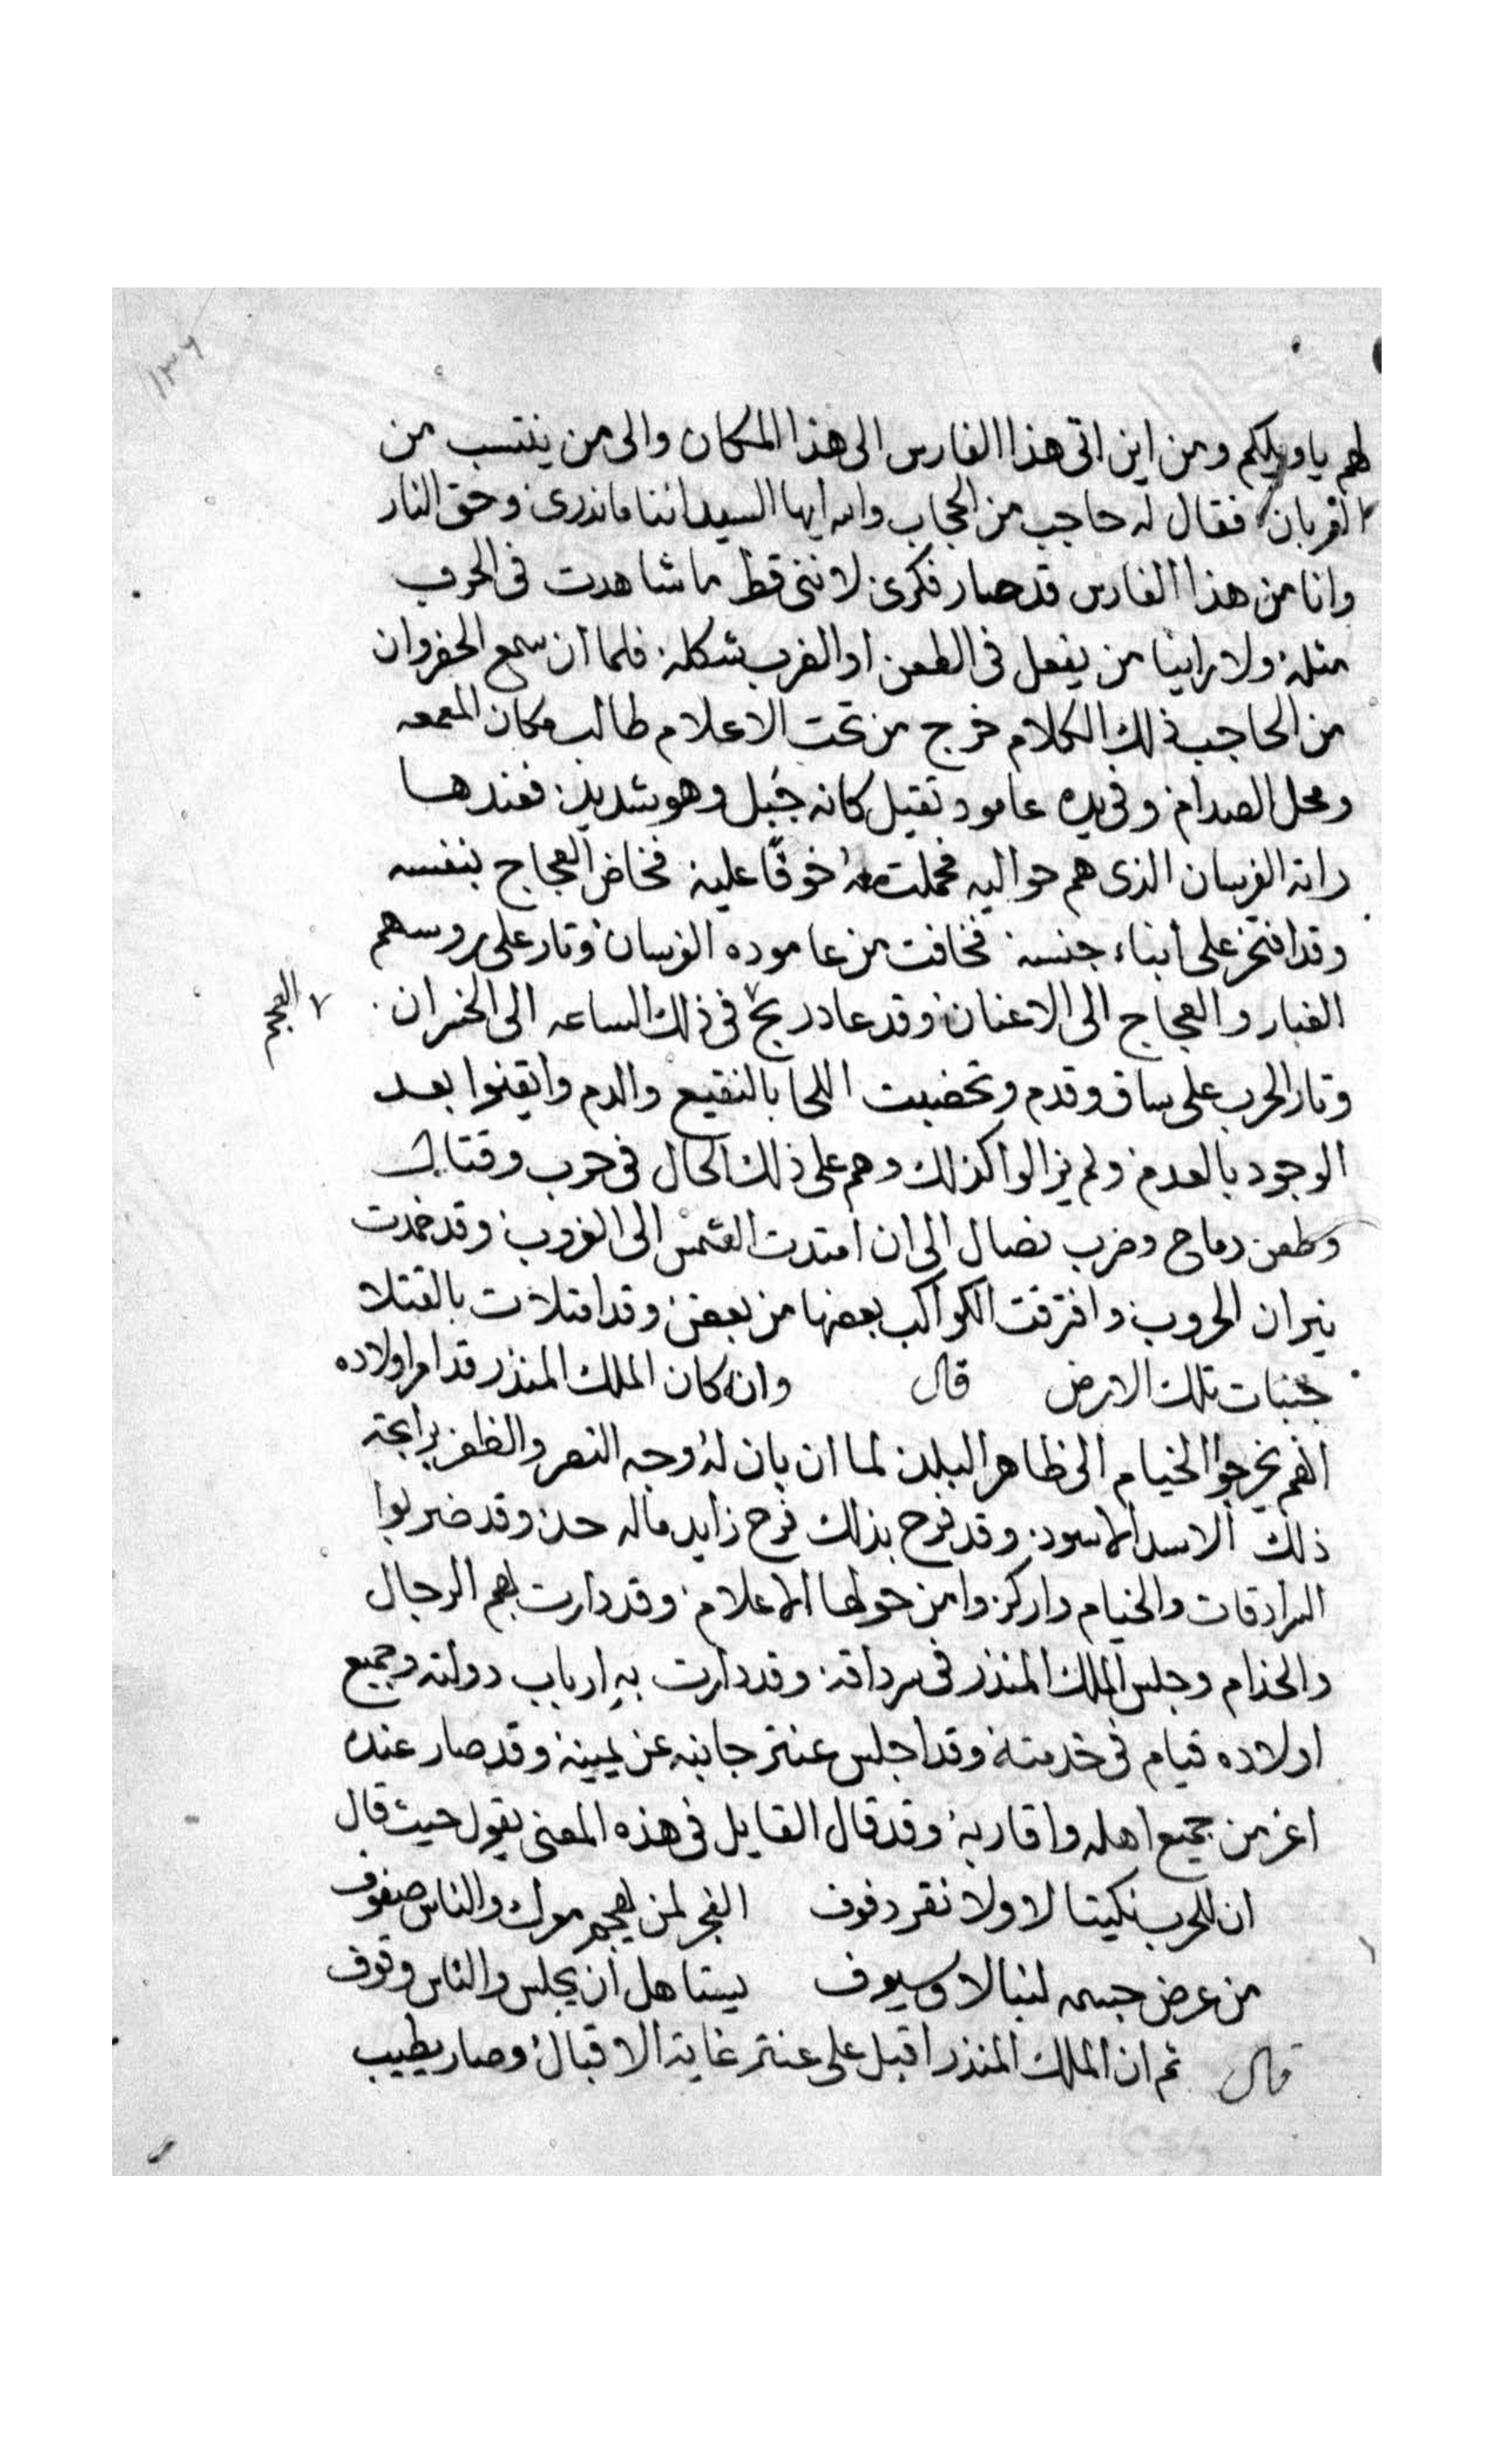 ١٣٦
لهم يا ويلكم ومن اين اتى هذا الفارس الى هذا المكان والى من ينتسب من
العربان فقال له حاجب من الحجاب والله ايها السيد اننا ما ندرى وحق النار
وانا من هذا الفارس قد حار فكرى لاننى قط ما شاهدت فى الحرب
مثله ولا راينا من يفعل فى الطعن او الضرب شكله فلما ان سمع الخسروان
من الحاجب ذلك الكلام خرج من تحت الاعلام طالب مكان المعمعه
ومحل الصدام وفى يده عامود ثقيل كانه جبل وهو شديد فعندها
راته الفرسان الذى هم حواليه فحملت معه خوفًا عليه فخاض العجاج بنفسه
وقد افتخر على ابناء جنسه فخافت من عاموده الفرسان وثار على روسهم
الغبار والعجاج الى الاعنان وقد عاد ربح فى ذلك الساعه الى الخسران
العجم
وثار الحرب على ساق وقدم وتخضبت اللحا بالنقيع والدم وايقنوا بعد
الوجود بالعدم ولم يزالوا كذلك وهم على ذلك الحال فى حرب وقتال
وطعن رماح وضرب نصال الى ان امتدت الشمس الى الغروب وقد خمدت
نيران الحروب وافترقت الكواكب بعضها من بعض وقد امتلات بالقتلا
جنبات تلك الارض قال وان كان الملك المنذر قد امر اولاده
انهم يخرجوا الخيام الى ظاهر البلد لما ان بان له وجه النصر والظفر براعة
ذلك الاسد الاسود وقد فرح بذلك فرح زايد ماله حد وقد ضربوا
السرادقات والخيام واركزوا من حولها الاعلام وقد دارت بهم الرجال
والخدام وجلس الملك المنذر فى سرداقه وقد دارت به ارباب دولته وجميع
اولاده قيام فى خدمته وقد اجلس عنتر جانبه عن يمينه وقد صار عنده
اعز من جميع اهله واقاربه وقد قال القايل فى هذه المعنى يقول حيث قال
ان للحرب نكيتا لا ولا نقر دفوف الفجر لمن يهجم معرك والناس صفوف
من عرض جسمه لنبالا وسيوف يستاهل ان يجلس والناس وقوف
قال ثم ان الملك المنذر اقبل على عنتر غاية الاقبال وصار يطيب